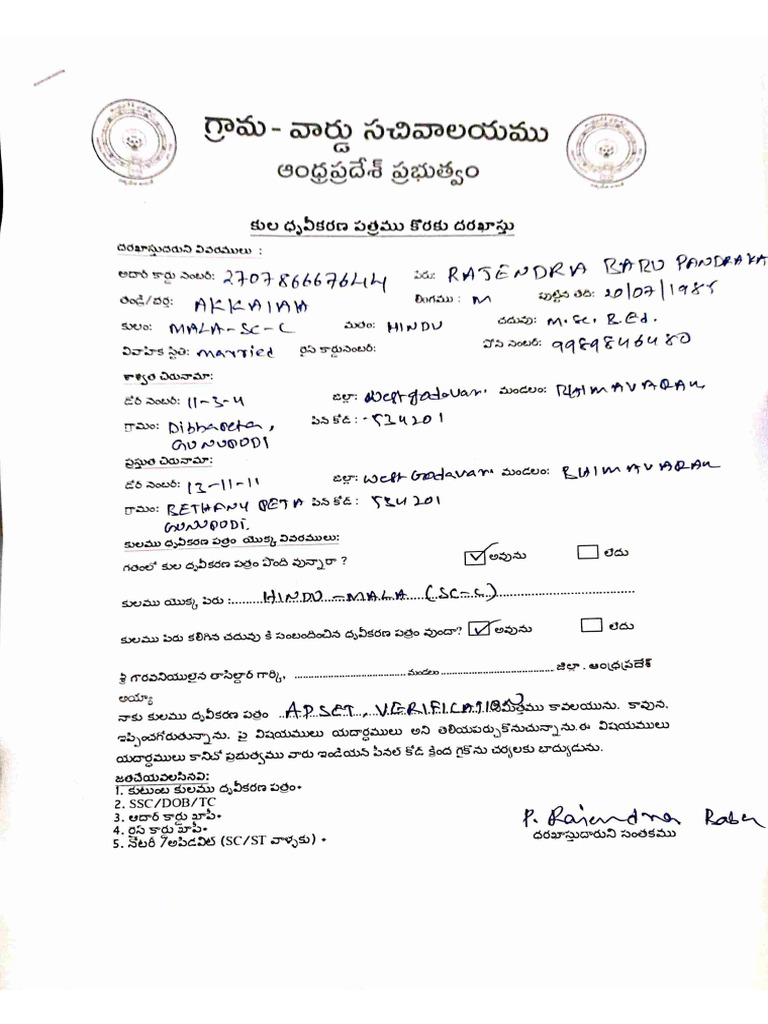 గ్రామ - వార్డు సచివాలయము
ఆంధ్రప్రదేశ్ ప్రభుత్వం
కుల ధృవీకరణ పత్రము కొరకు దరఖాస్తు
దరఖాస్తుదారుని వివరములు :
అదార్ కార్డు నంబర్: 270786667644 పేరు: RAJENDRA BABU PANDRAKA
తండ్రి/భర్త: AKKAIAH లింగము : M పుట్టిన తేది: 20/07/1985
కులం: MALA-SC-C మతం: HINDU చదువు: M.Sc. B.Ed.
వివాహిక స్థితి: married రైస్ కార్డునంబర్: ఫోన్ నంబర్: 9989846480
శాశ్వత చిరునామా:
డోర్ నంబర్: 11-3-4 జిల్లా: West godavari మండలం: BHIMAVARAM
గ్రామం: Dibbapeta, పిన్ కోడ్ : - 534201
GUNUPODI
ప్రస్తుత చిరునామా:
డోర్ నంబర్: 13-11-11 జిల్లా: West Godavari మండలం: BHIMAVARAM
గ్రామం: BETHANY PETA పిన్ కోడ్ : 534201
GUNUPODI.
కులము ధృవీకరణ పత్రం యొక్క వివరములు:
గతంలో కుల దృవీకరణ పత్రం పొంది వున్నారా ? ✓ అవును లేదు
కులము యొక్క పేరు :...HINDU - MALA (SC-C)...
కులము పేరు కలిగిన చదువు కి సంబందించిన దృవీకరణ పత్రం వుందా? ✓ అవును లేదు
శ్రీ గౌరవనియులైన తాసిల్దార్ గార్కి, ........ మండలు ........ జిల్లా . ఆంధ్రప్రదేశ్
అయ్యా
నాకు కులము దృవీకరణ పత్రం ..APSET, VERIFICATION నిమిత్తము కావలయును. కావున,
ఇప్పించగోరుతున్నాను. పై విషయములు యదార్ధములు అని తెలియపర్చుకొనుచున్నాను.ఈ విషయములు
యదార్ధములు కానిచో ప్రభుత్వము వారు ఇండియన్ పీనల్ కోడ్ క్రింద గైకొను చర్యలకు బాద్యుడును.
జతచేయవలసినవి:
1. కుటుంట కులము దృవీకరణ పత్రం•
2. SSC/DOB/TC
3. ఆదార్ కార్డు ఖాపీ•
4. రైస్ కార్డు ఖాపీ•
5. నోటరీ 7అపిడవిట్ (SC/ST వాళ్ళకు) •
P. Rajendra Babu
దరఖాస్తుదారుని సంతకము